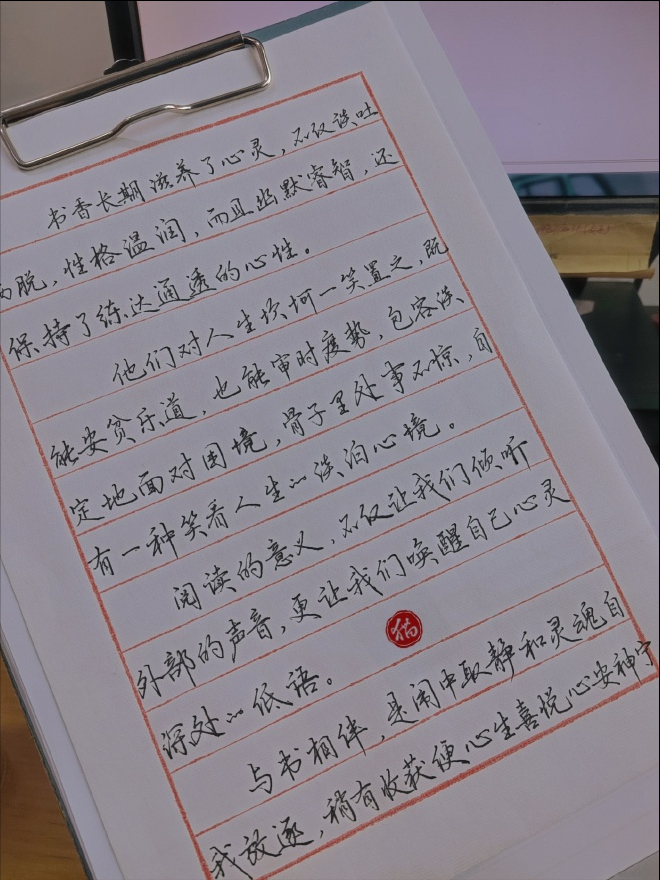 书香长期滋养了心灵，不仅谈吐
脱，性格温润，而且幽默睿智，还
保持了练达通透的心性。
他们对人生坎坷一笑置之，既
能安贫乐道，也能审时度势，包容淡
定地面对困境，骨子里处事不惊，自
有一种笑看人生的淡泊心境。
阅读的意义，不仅让我们倾听
外部的声音，更让我们唤醒自己心灵
深处的低语。
与书相伴，是闹中取静和灵魂自
我放逐，稍有收获便心生喜悦心安神宁